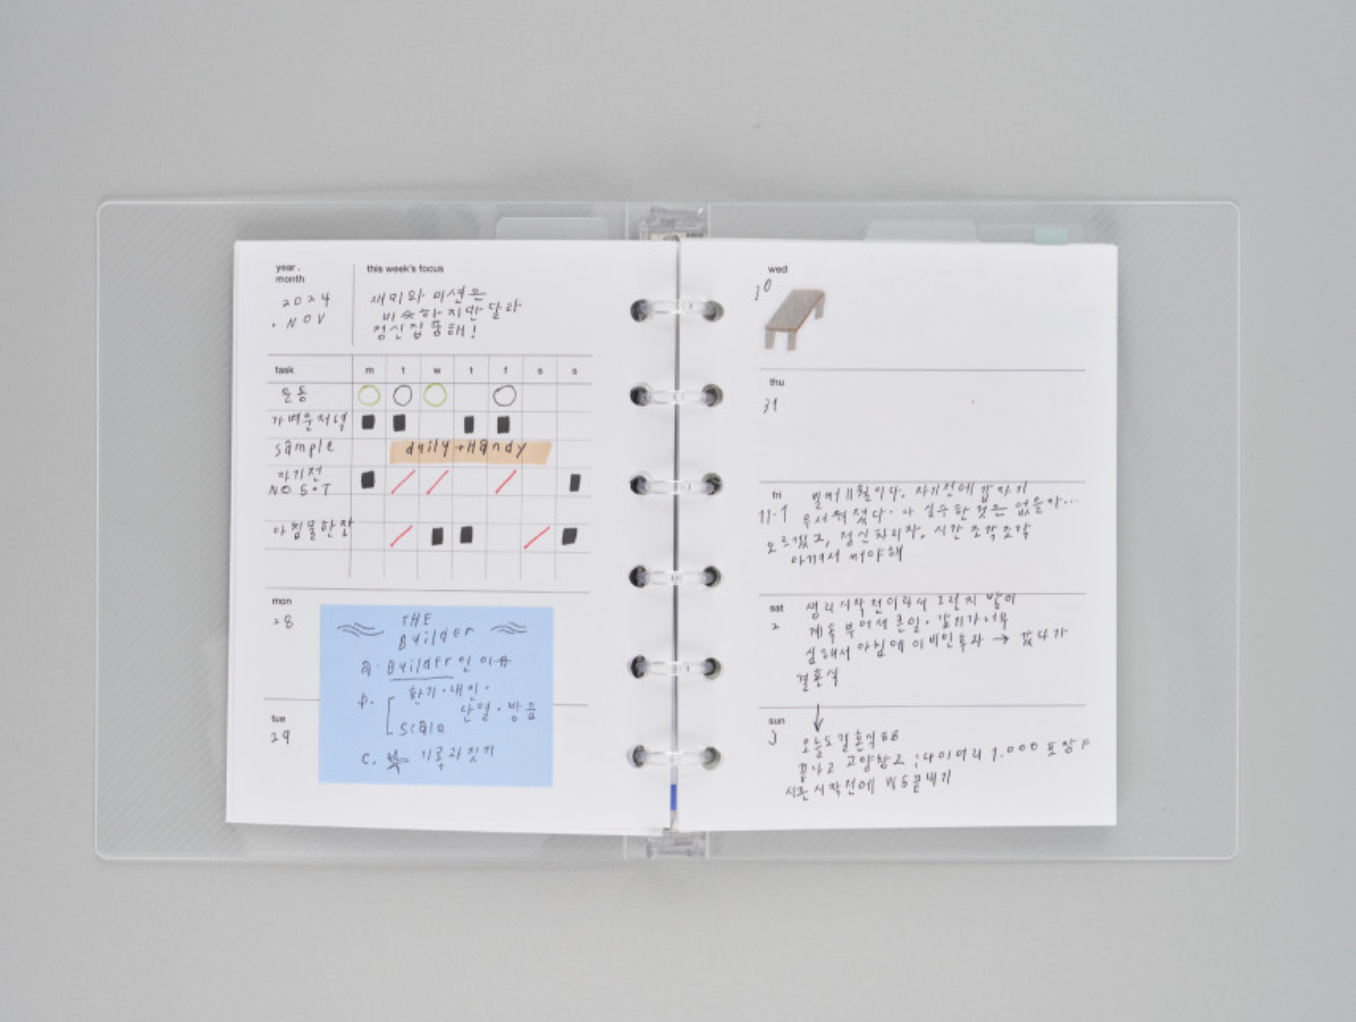 year.
month
2024
. NOV
this week's focus
재미와 미션은
비슷하지만 달라
정신집중해!
task m t w t f s s
운동
가벼운저녁
sample daily + Handy
자기전
NO S·T
아침물한잔
mon
28
THE
Builder
a. Builder인 이유
b. 환기·내진·
단열·방음
scale
c. 기록과 짓기
tue
29
wed
30
thu
31
fri
11.1
벌써 11월이다. 자기전에 갑자기
나 실수한 것은 없을까...
모르겠고, 정신차리자. 시간 조각조각
아껴서 써야해
sat
2
생리시작전이라서 그런지 발이
계속 부어서 큰일.
심해서 아침에 이비인후과 → 갔다가
결혼식
sun
3
오늘도 결혼식
끝나고 고양창고 ; 다이어리 1.000 포장
시즌 시작전에